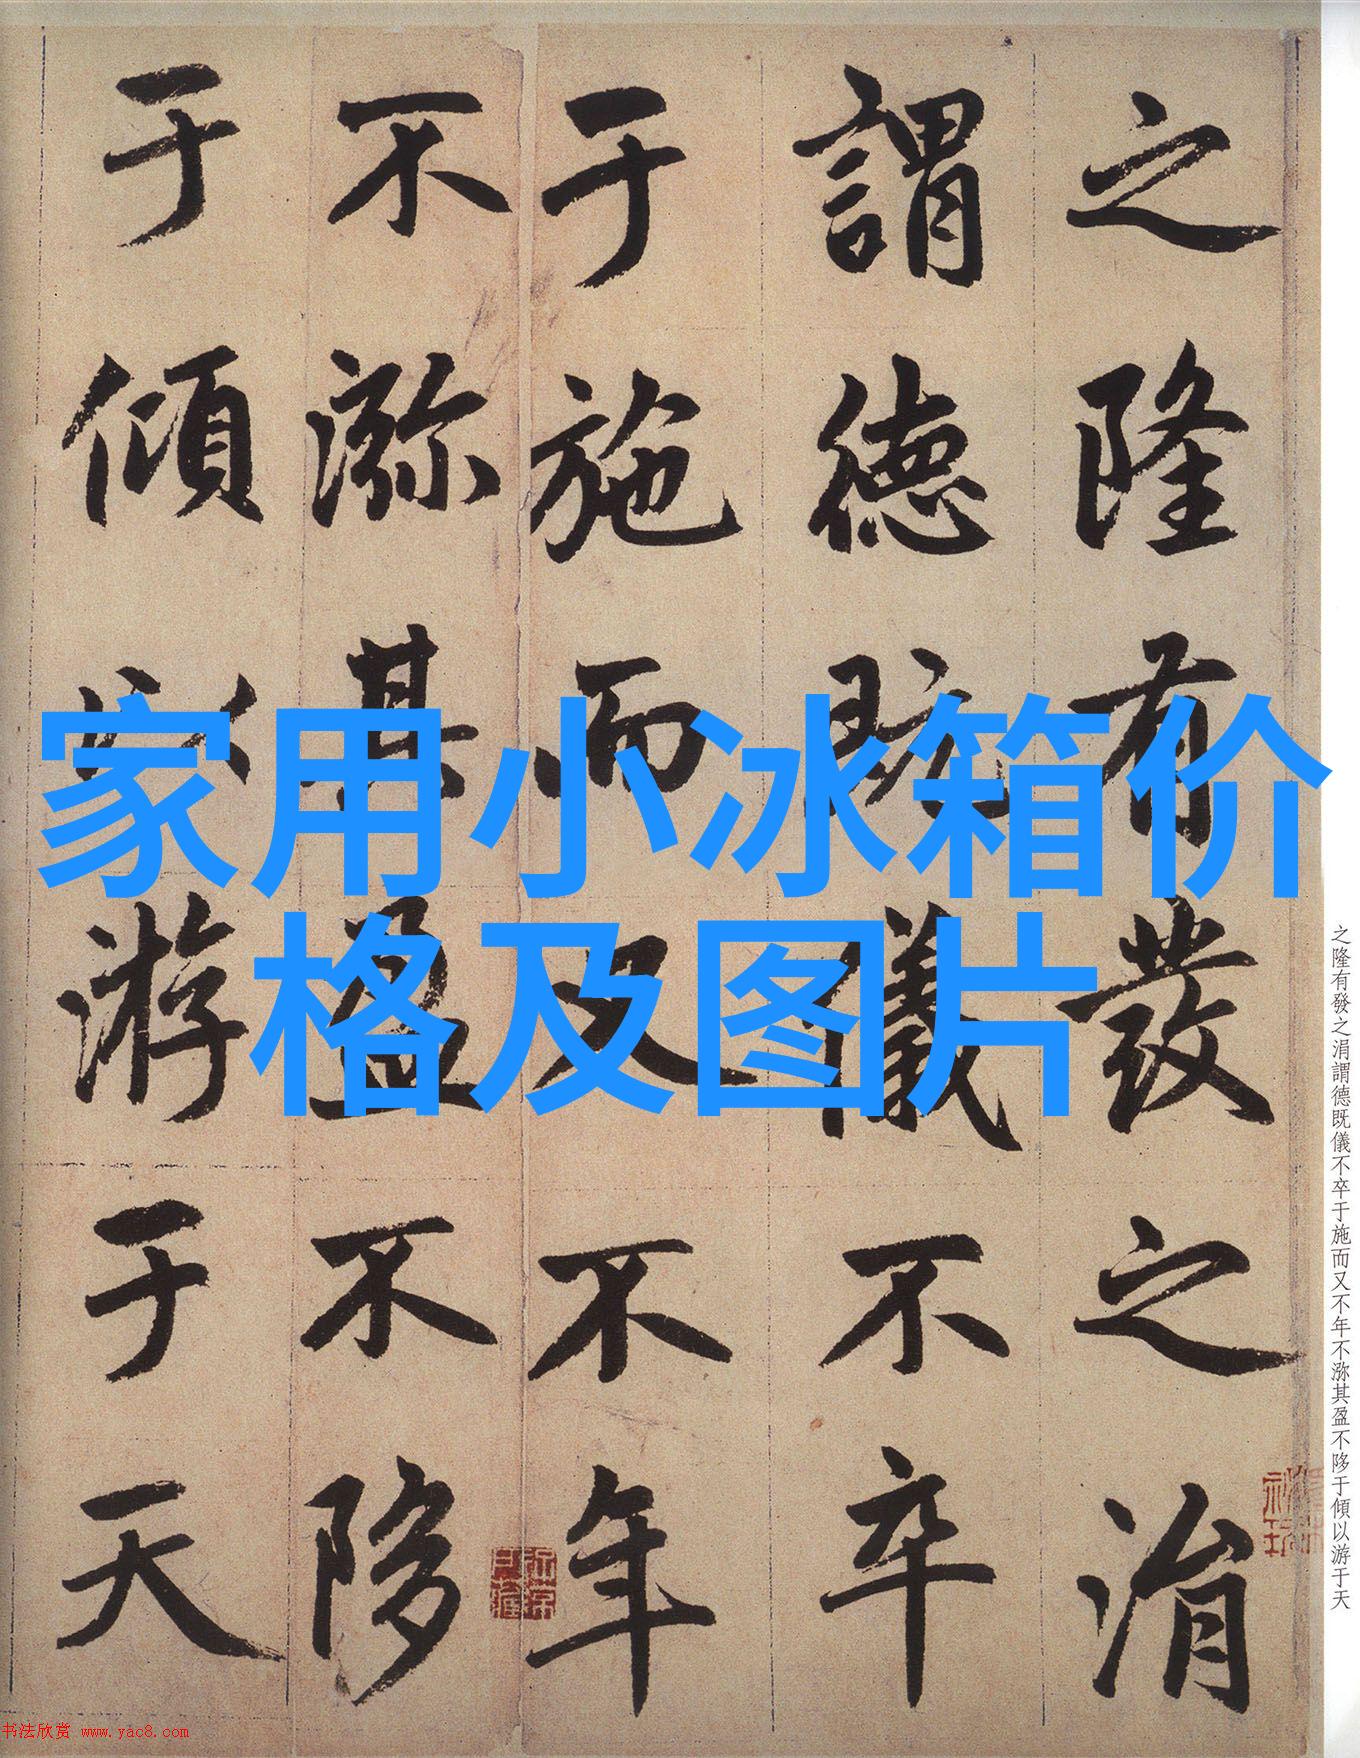 之隆有發之涓
謂德既儀不卒
于施而又不年
不㳽其盈不陊
于傾以游于天
家用小冰箱价
格及图片
之隆有發之涓謂德既儀不卒于施而又不年不㳽其盈不陊于傾以游于天
书法欣赏 www.yac8.com